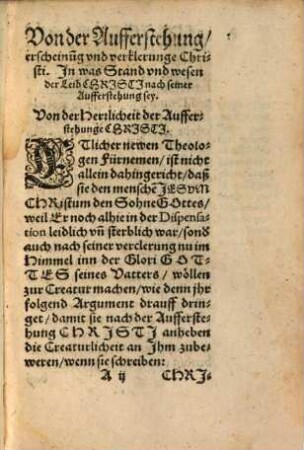 Von der Aufferstehung/
erscheinūg vnd verklerunge Chri-
sti. In was Stand vnd wesen
der Leib CHRISTI nach seiner
Aufferstehung sey.
Von der Herrlicheit der Auffer-
stehunge CHRISTI.
ETlicher newen Theolo-
gen Fürnemen/ist nicht
allein dahin gericht/daß
sie den menschē JESVM
CHRistum den Sohne GOttes/
weil Er noch alhie in der Dispensa-
tion leidlich vñ sterblich war/sond̄
auch nach seiner verclerung nu im
Himmel inn der Glori GOT-
TES seines Vatters/ wöllen
zur Creatur machen/wie denn jhr
folgend Argument drauff drin-
get/damit sie nach der Auffersteh-
hung CHRISTI anheben
die Creaturlicheit an Jhm zube-
weren/wenn sie schreiben:
A ij CHRI-